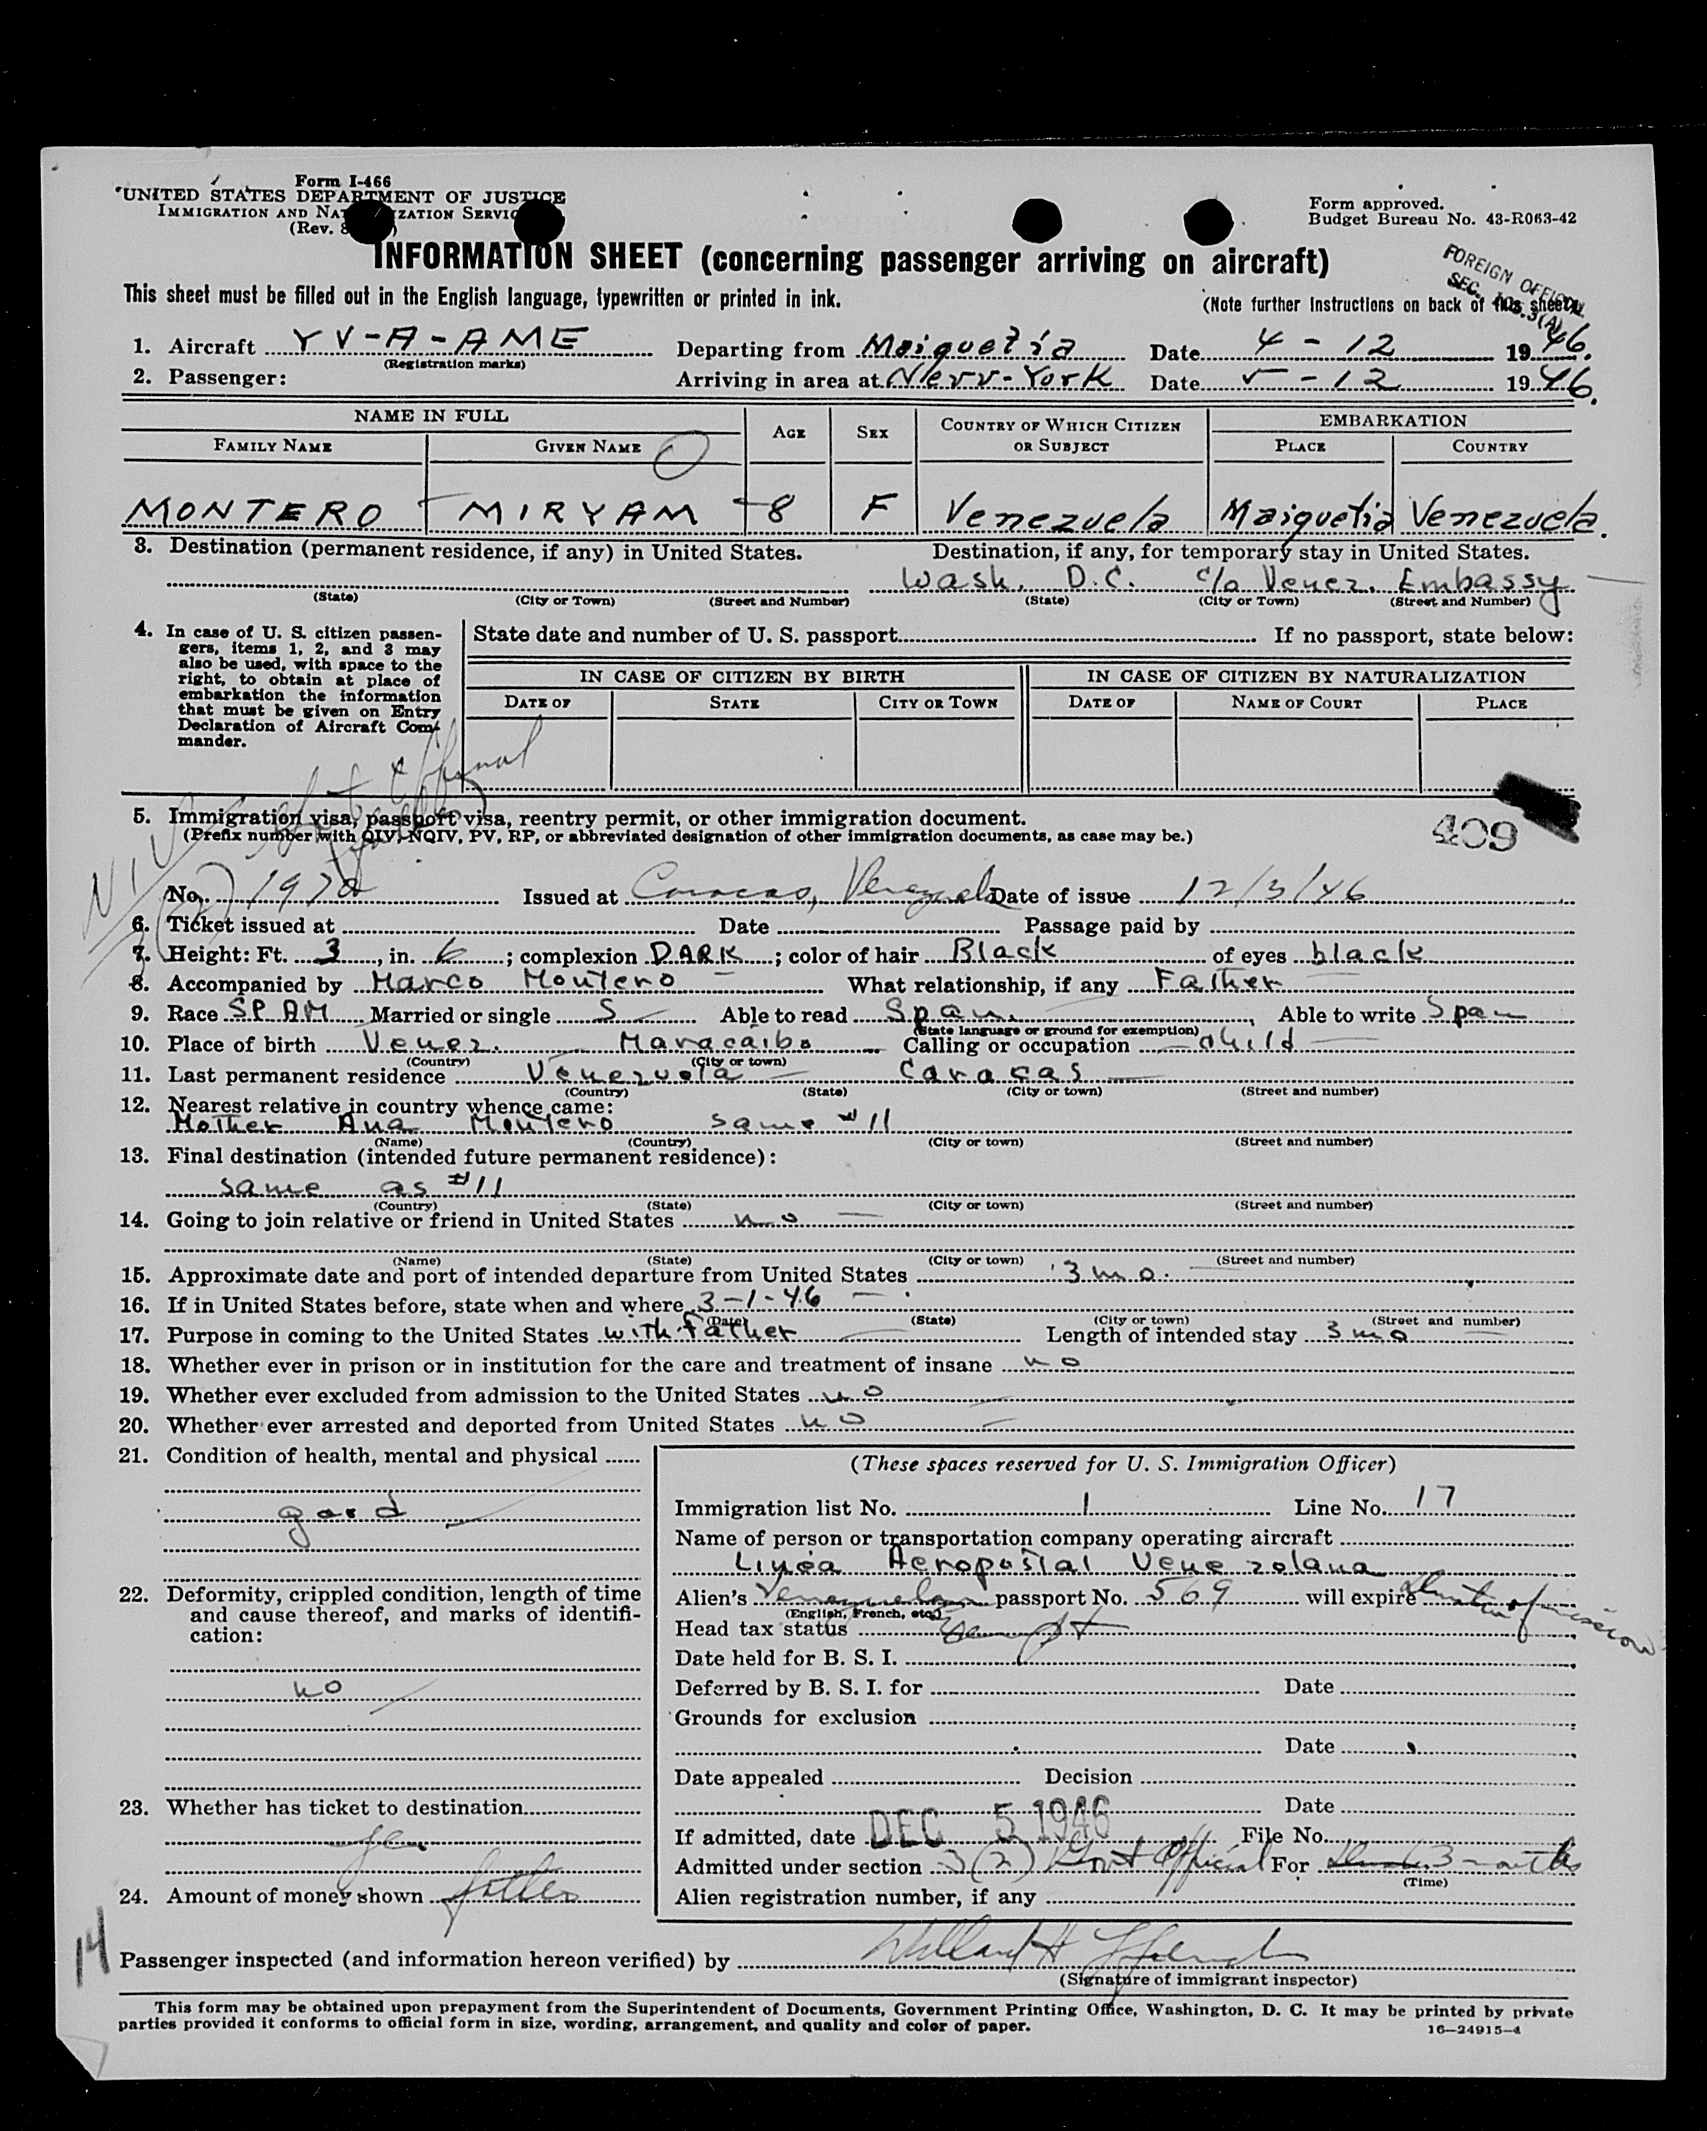 Form I-466
UNITED STATES DEPARTMENT OF JUSTICE
IMMIGRATION AND NATURALIZATION SERVICE
(Rev.
Form approved.
Budget Bureau No. 43-R063-42
INFORMATION SHEET (concerning passenger arriving on aircraft)
FOREIGN OFFICIAL
SEC. 3(A)
This sheet must be filled out in the English language, typewritten or printed in ink.
(Note further instructions on back of this sheet)
1. Aircraft YV-A-AME Departing from Maiquetia Date 4-12 1946.
(Registration marks)
2. Passenger: Arriving in area at New-York Date 5-12 1946.
NAME IN FULL AGE SEX COUNTRY OF WHICH CITIZEN OR SUBJECT EMBARKATION
FAMILY NAME GIVEN NAME PLACE COUNTRY
MONTERO MIRYAM 8 F Venezuela Maiquetia Venezuela.
3. Destination (permanent residence, if any) in United States. Destination, if any, for temporary stay in United States.
Wash. D.C. c/o Venez. Embassy
(State) (City or Town) (Street and Number) (State) (City or Town) (Street and Number)
4. In case of U. S. citizen passengers, items 1, 2, and 3 may also be used, with space to the right, to obtain at place of embarkation the information that must be given on Entry Declaration of Aircraft Commander.
State date and number of U. S. passport If no passport, state below:
IN CASE OF CITIZEN BY BIRTH IN CASE OF CITIZEN BY NATURALIZATION
DATE OF STATE CITY OR TOWN DATE OF NAME OF COURT PLACE
5. Immigration visa, passport visa, reentry permit, or other immigration document.
(Prefix number with QIV, NQIV, PV, RP, or abbreviated designation of other immigration documents, as case may be.)
409
No. Issued at Caracas, Venezuela Date of issue 12/3/46
6. Ticket issued at Date Passage paid by
7. Height: Ft. 3, in. 6; complexion DARK; color of hair Black of eyes black
8. Accompanied by Marco Montero What relationship, if any Father
9. Race SP AM Married or single S Able to read Span. Able to write Span
(State language or ground for exemption)
10. Place of birth Venez. Maracaibo Calling or occupation child
(Country) (City or town)
11. Last permanent residence Venezuela Caracas
(Country) (State) (City or town) (Street and number)
12. Nearest relative in country whence came:
Mother Ana Montero same #11
(Name) (Country) (City or town) (Street and number)
13. Final destination (intended future permanent residence):
same as #11
(Country) (State) (City or town) (Street and number)
14. Going to join relative or friend in United States no
(Name) (State) (City or town) (Street and number)
15. Approximate date and port of intended departure from United States 3 mo.
16. If in United States before, state when and where 3-1-46
(Date) (State) (City or town) (Street and number)
17. Purpose in coming to the United States with father Length of intended stay 3 mo
18. Whether ever in prison or in institution for the care and treatment of insane no
19. Whether ever excluded from admission to the United States no
20. Whether ever arrested and deported from United States no
21. Condition of health, mental and physical
good
22. Deformity, crippled condition, length of time and cause thereof, and marks of identification:
no
23. Whether has ticket to destination
yes
24. Amount of money shown father
(These spaces reserved for U. S. Immigration Officer)
Immigration list No. 1 Line No. 17
Name of person or transportation company operating aircraft
Linea Aeropostal Venezolana
Alien's Venezuelan passport No. 569 will expire Duration of mission
(English, French, etc.)
Head tax status Exempt
Date held for B. S. I.
Deferred by B. S. I. for Date
Grounds for exclusion
Date
Date appealed Decision
Date
If admitted, date DEC 5 1946 File No.
Admitted under section 3(2) Govt Official For 3 months
(Time)
Alien registration number, if any
14
Passenger inspected (and information hereon verified) by
(Signature of immigrant inspector)
This form may be obtained upon prepayment from the Superintendent of Documents, Government Printing Office, Washington, D. C. It may be printed by private
parties provided it conforms to official form in size, wording, arrangement, and quality and color of paper.
16—24915-4